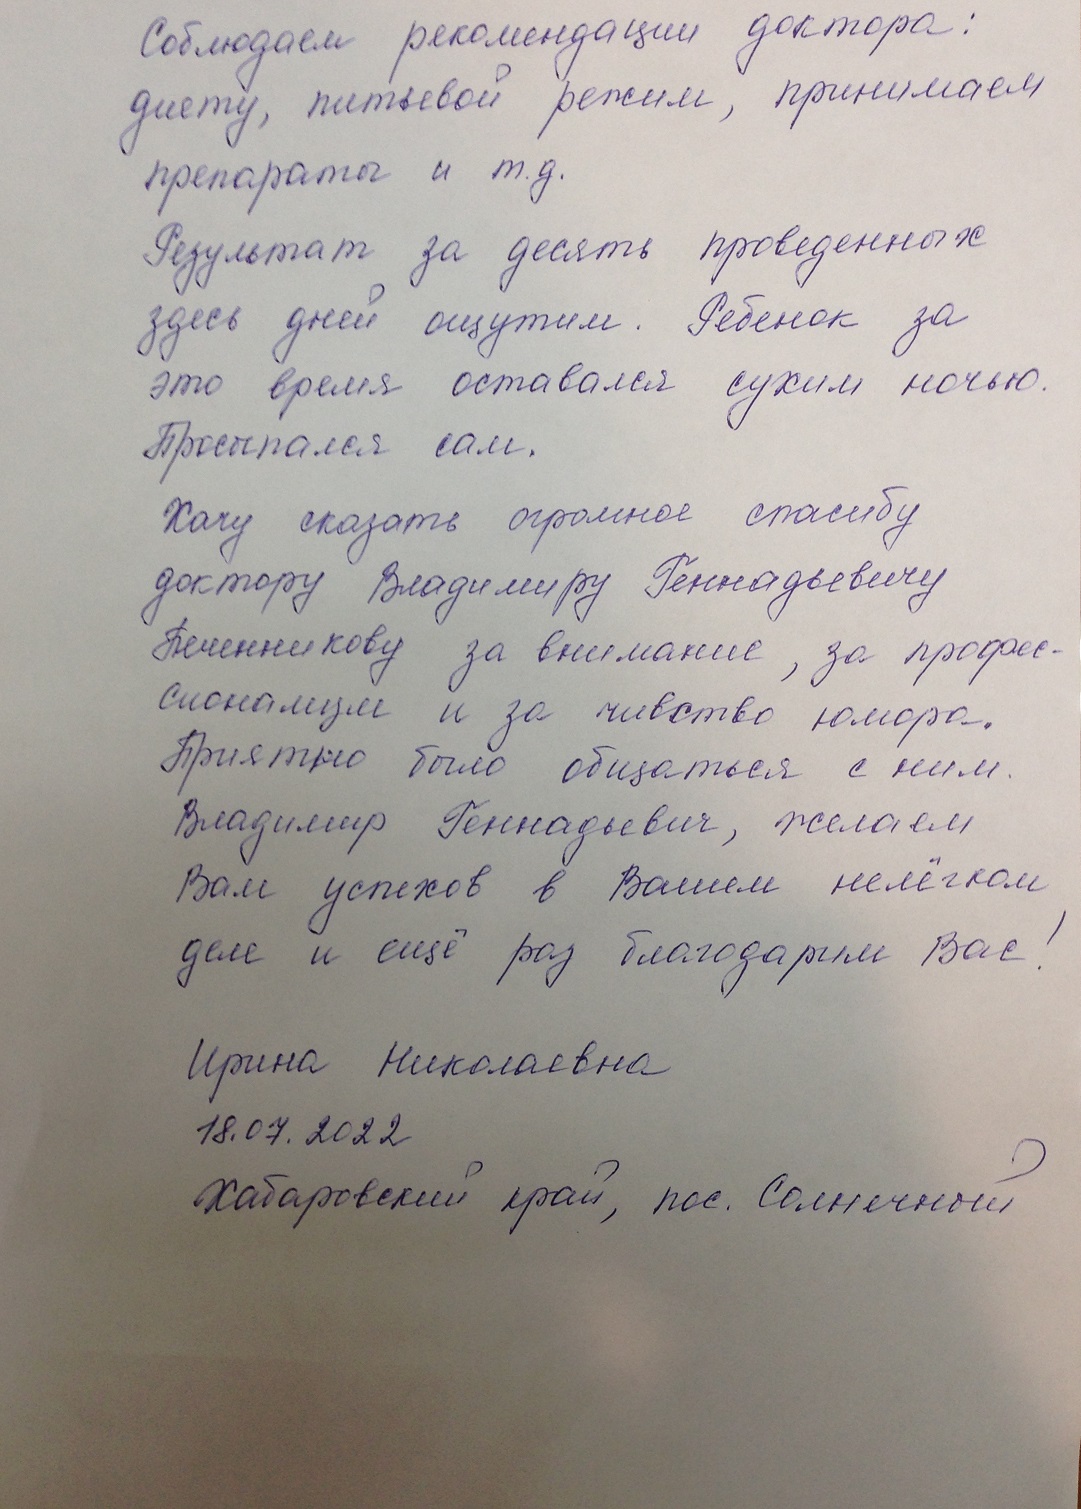 Соблюдаем рекомендации доктора:
диету, питьевой режим, принимаем
препараты и т.д.
Результат за десять проведенных
здесь дней ощутим. Ребенок за
это время оставался сухим ночью.
Просыпался сам.
Хочу сказать огромное спасибу
доктору Владимиру Геннадьевичу
Печенникову за внимание, за профес-
сионализм и за чувство юмора.
Приятно было общаться с ним.
Владимир Геннадьевич, желаем
Вам успехов в Вашем нелёгком
деле и ещё раз благодарим Вас!
Ирина Николаевна
18.07.2022
Хабаровский край, пос. Солнечный